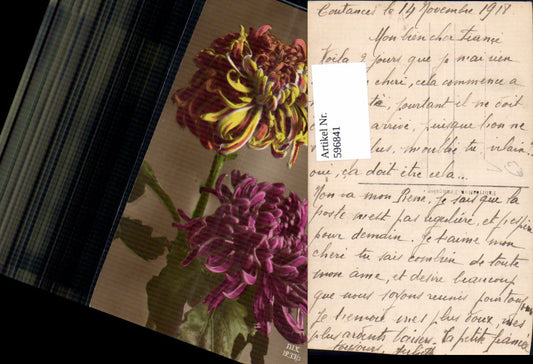 Coutances le 14 Novembre 1918
Mon bien cher fiancé
Voila 2 jours que je n'ai rien
cheri, cela commence a
pourtant il ne doit
arrive, puisque l'on ne
plus,
oui, ça doit être cela...
Non va mon René, je sais que la
poste n'est pas régulière, et j'espère
pour demain. Je t'aime mon
cheri tu sais combien de toute
mon âme, et desire beaucoup
que nous soyons reunis pour toujours
Je t'envoie mes plus doux, mes
plus ardents baisers. Ta petite fiancée
toujours,
Artikel Nr.
596841